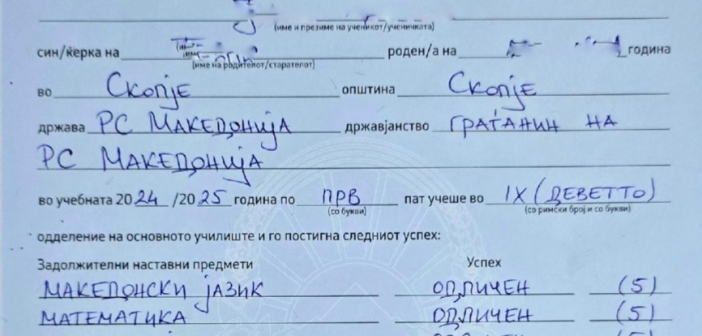 (име и презиме на ученикот/ученичката)
син/ќерка на роден/а на година
(име на родителот/старателот)
во Скопје општина Скопје
држава РС МАКЕДОНИЈА државјанство ГРАЃАНИН НА
РС МАКЕДОНИЈА
во учебната 2024/2025 година по ПРВ пат учеше во IX (ДЕВЕТТО)
(со букви) (со римски број и со букви)
одделение на основното училиште и го постигна следниот успех:
Задолжителни наставни предмети Успех
МАКЕДОНСКИ ЈАЗИК ОДЛИЧЕН (5)
МАТЕМАТИКА ОДЛИЧЕН (5)